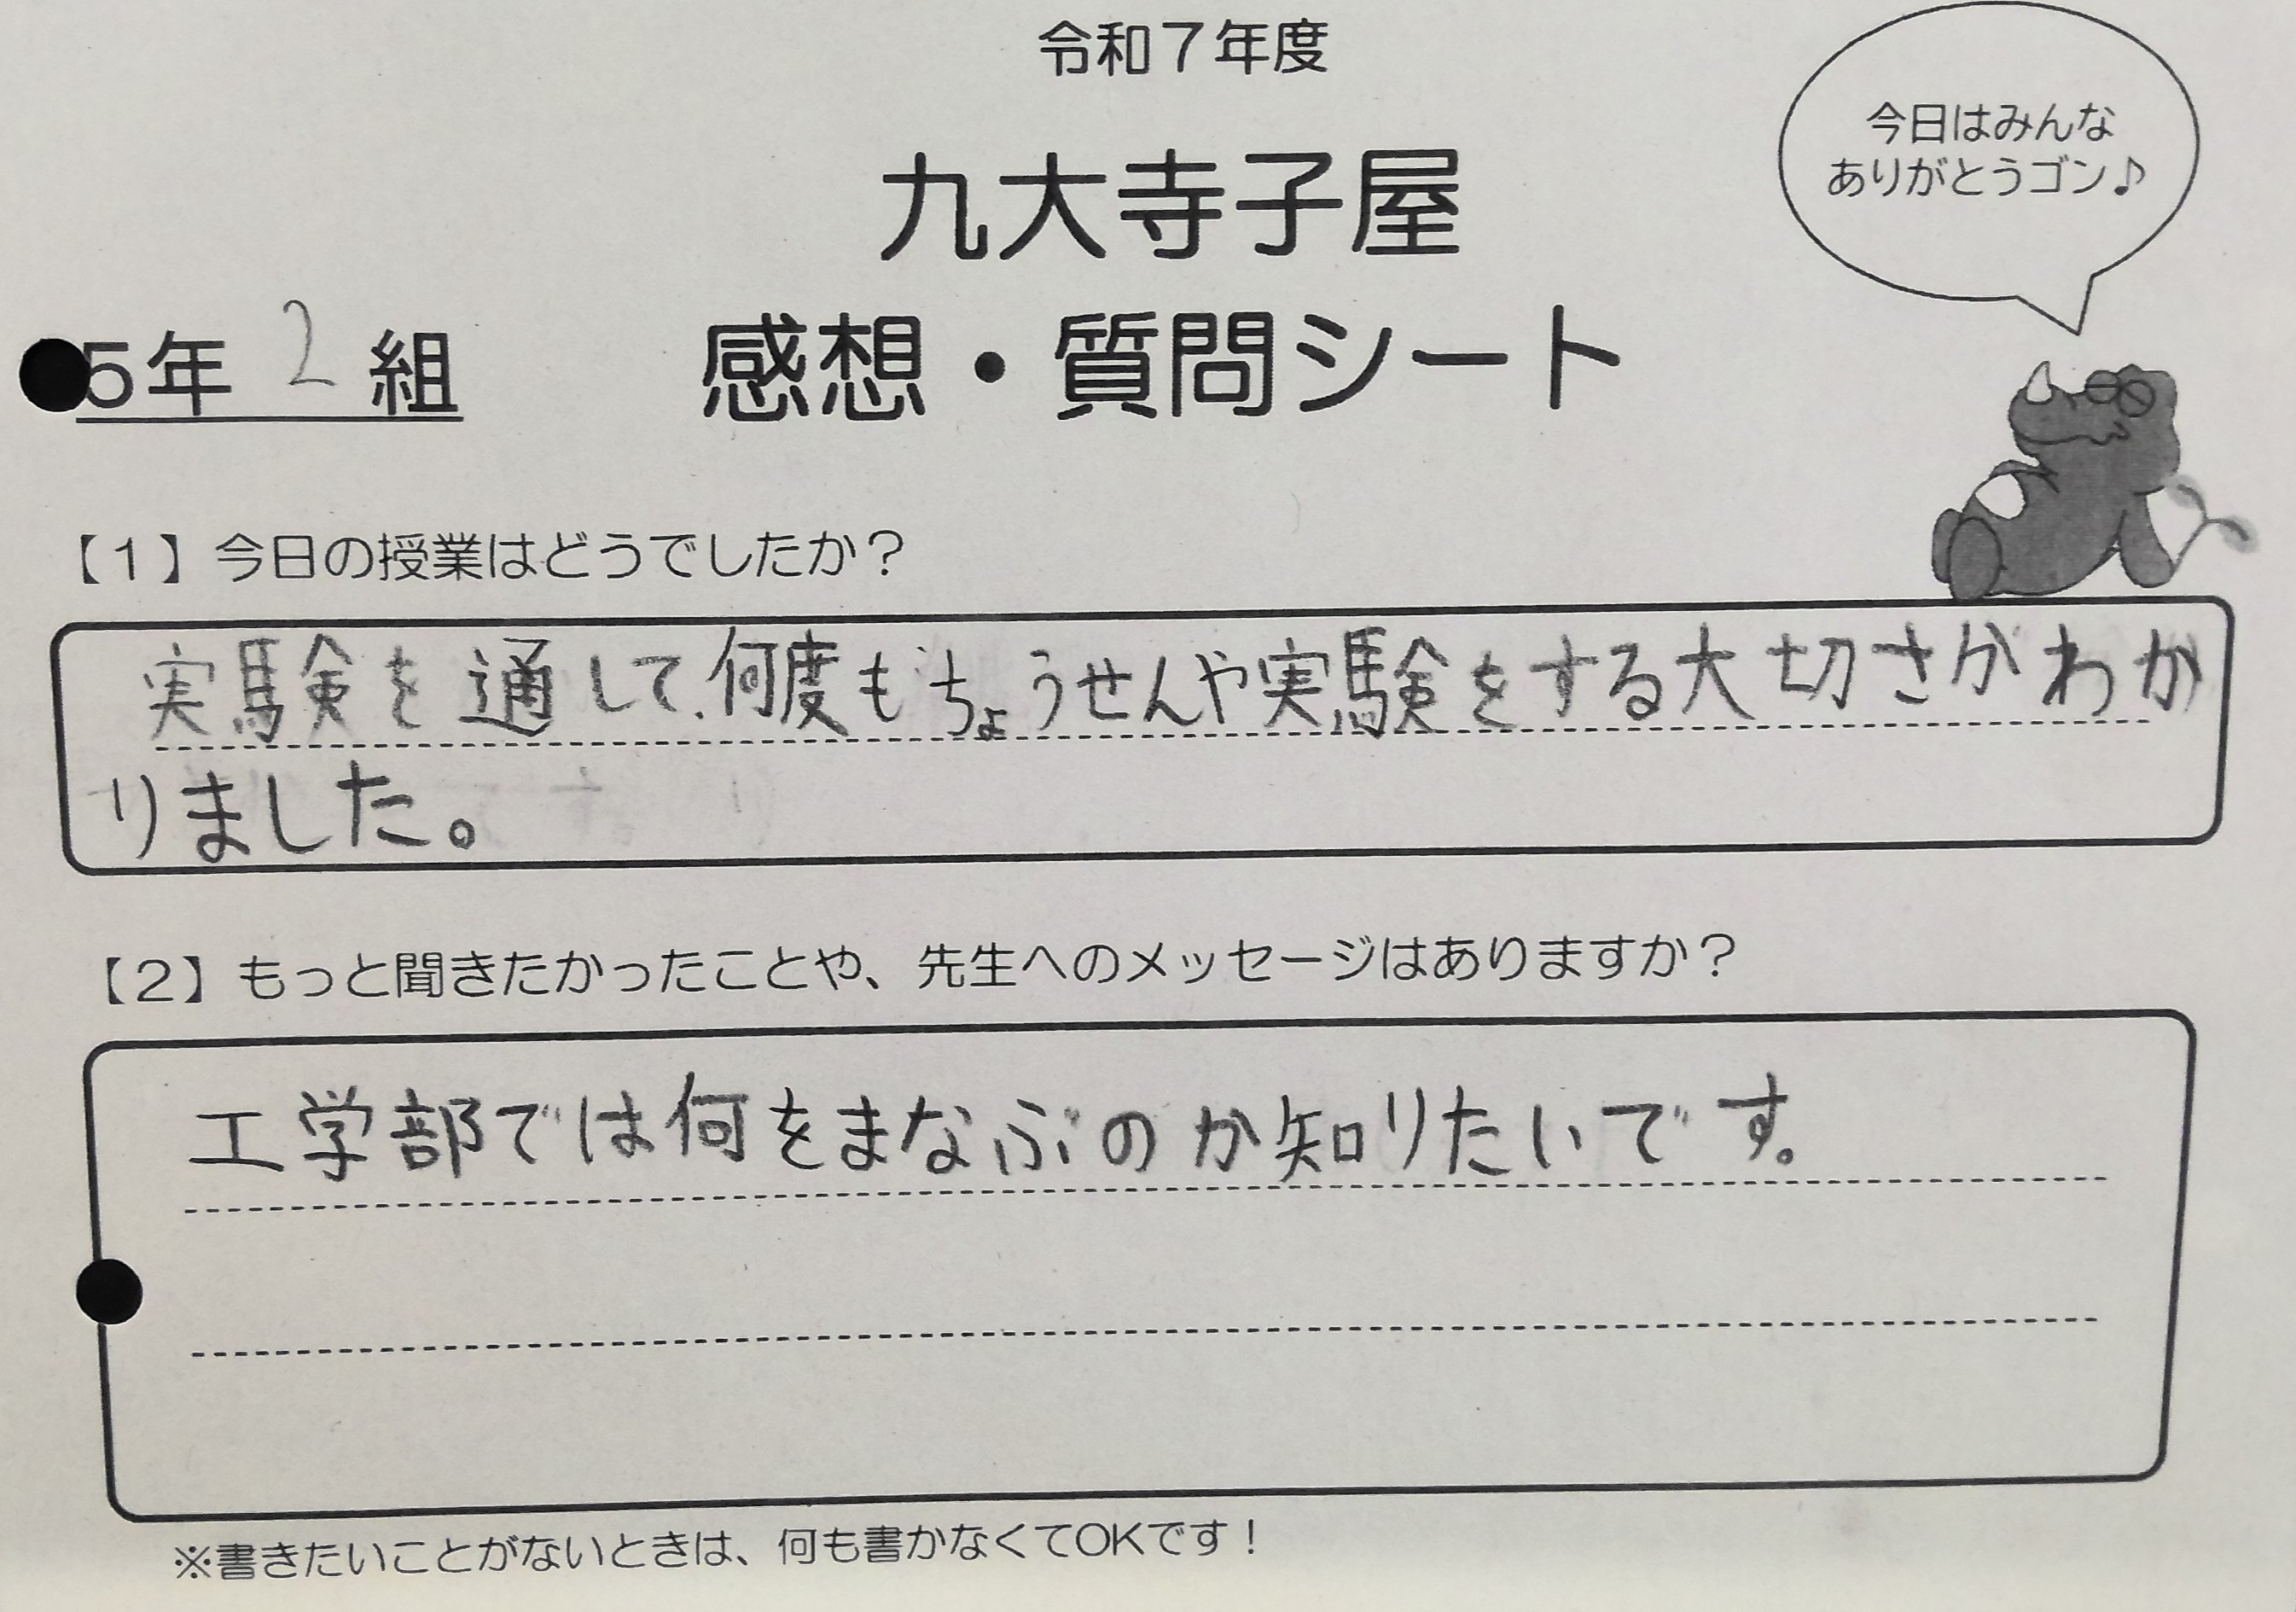 令和７年度
九大寺子屋
感想・質問シート
今日はみんな
ありがとうゴン♪
5年 2 組
【１】今日の授業はどうでしたか？
実験を通して、何度もちょうせんや実験をする大切さがわか
りました。
【２】もっと聞きたかったことや、先生へのメッセージはありますか？
工学部では何をまなぶのか知りたいです。
※書きたいことがないときは、何も書かなくてOKです！